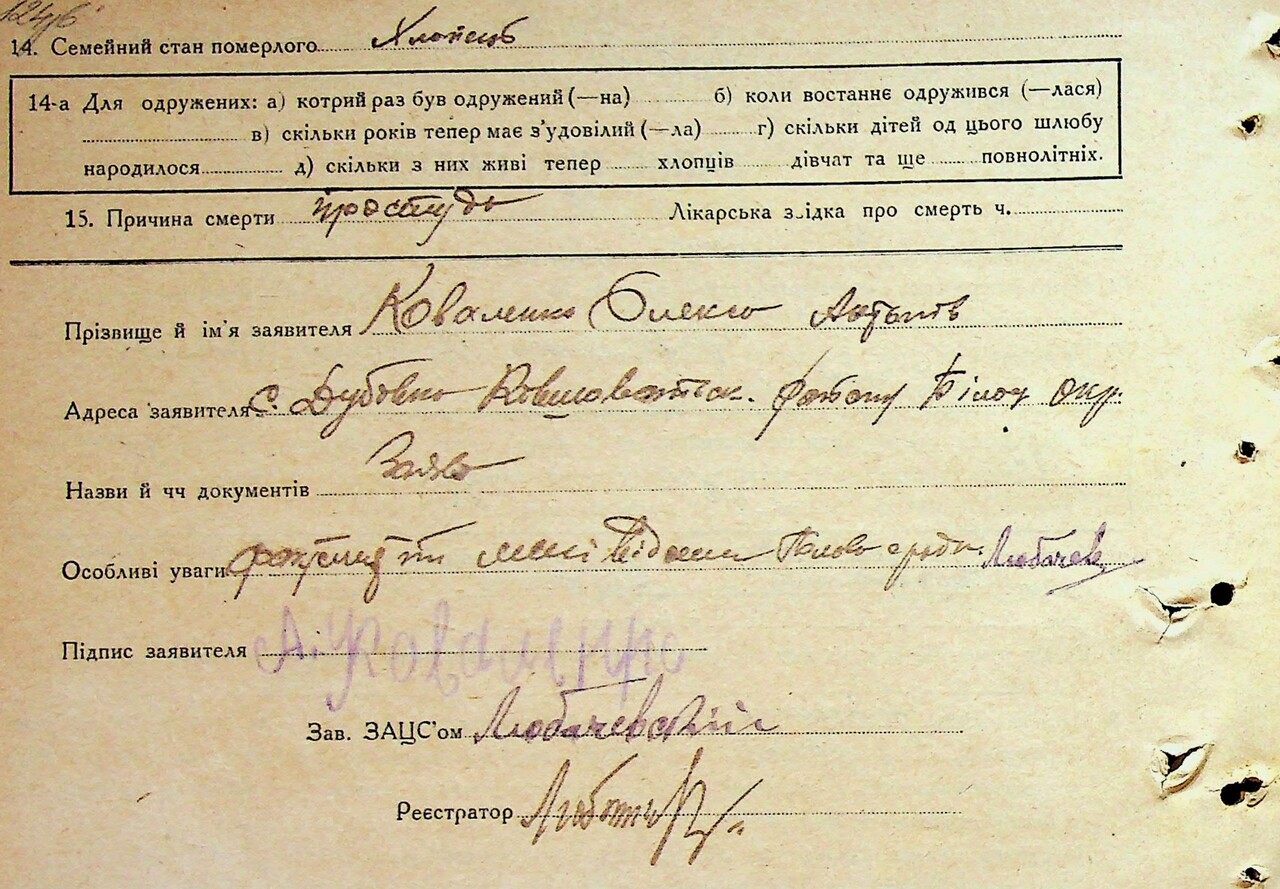 14. Семейний стан померлого Хлопець
14-а Для одружених: а) котрий раз був одружений (—на) б) коли востаннє одружився (—лася)
в) скільки років тепер має з'удовілий (—ла) г) скільки дітей од цього шлюбу
народилося д) скільки з них живі тепер хлопців дівчат та ще повнолітніх.
15. Причина смерти простуда Лікарська з_ідка про смерть ч.
Прізвище й ім'я заявителя Коваленко Олекса
Адреса заявителя с. Дубовка району Білоц окр.
Назви й чч документів Заява
Особливі уваги мені відома Голова
Підпис заявителя А. Коваленко
Зав. ЗАЦС'ом Любачевский
Реєстратор